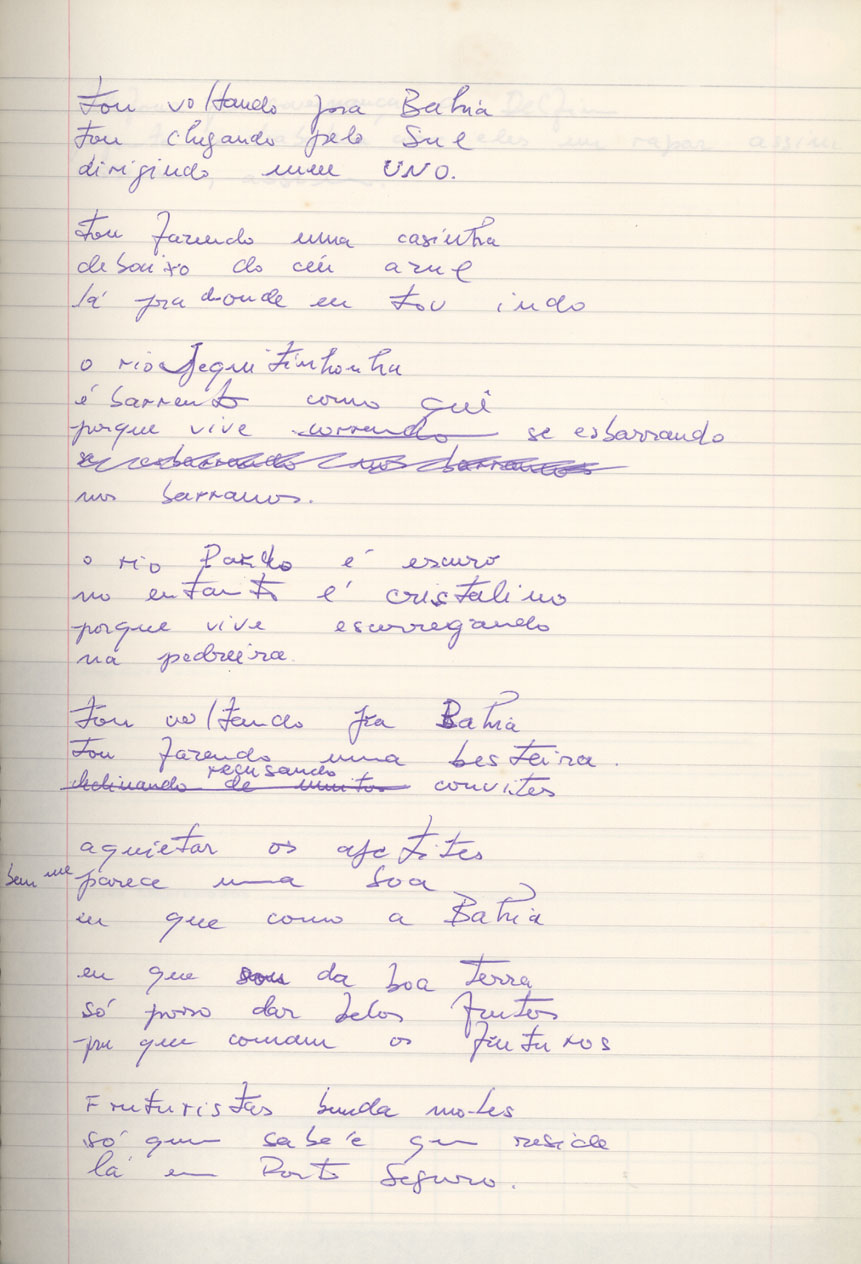 tou voltando pra Bahia
tou chegando pelo Sul
dirigindo meu UNO.
tou fazendo uma casinha
debaixo do céu azul
lá pradonde eu tou indo
o rio Jequitinhonha
é barrento como quê
porque vive correndo se esbarrando
se esbarrando nos barrancos
nos barrancos.
o rio Pardo é escuro
no entanto é cristalino
porque vive escorregando
na pedreira.
tou voltando pra Bahia
tou fazendo uma besteira.
recusando
declinando de muitos convites
aquietar os apetites
bem me parece uma boa
eu que como a Bahia
eu que sou da boa terra
só posso dar belos frutos
pra que comam os
Fruturistas bunda moles
só quem sabe é quem reside
lá em Porto Seguro.